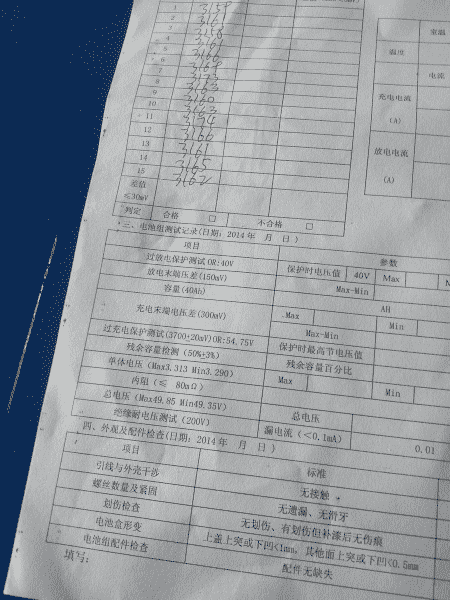 1 3159
2 3161
3
4
5
6
7
8
9
10 3160
11
12 3166
13 3161
14 3165
15 3162
差值
≤30mV
判定 合格 □ 不合格 □
室温
温度
电流
充电电流
（A）
放电电流
（A）
三、电池组测试记录(日期: 2014 年 月 日 )
项目 参数
过放电保护测试 OR:40V 保护时电压值 40V Max
放电末端压差(150mV) Max-Min
容量(40Ah) AH
充电末端电压差(300mV) Max Min
Max-Min
过充电保护测试(3700±20mV)OR:54.75V 保护时最高节电压值
残余容量检测 (50%±3%) 残余容量百分比
单体电压 (Max3.313 Min3.290) Max Min
内阻 (≤ 80mΩ)
总电压 (Max49.85 Min49.35V) 总电压
绝缘耐电压测试 (200V) 漏电流 (<0.1mA) 0.01
四、外观及配件检查(日期: 2014 年 月 日 )
项目 标准
引线与外壳干涉 无接触
螺丝数量及紧固 无遗漏、无滑牙
划伤检查 无划伤、有划伤但补漆后无伤痕
电池盒形变 上盖上突或下凹<1mm，其他面上突或下凹<0.5mm
电池组配件检查 配件无缺失
填写: